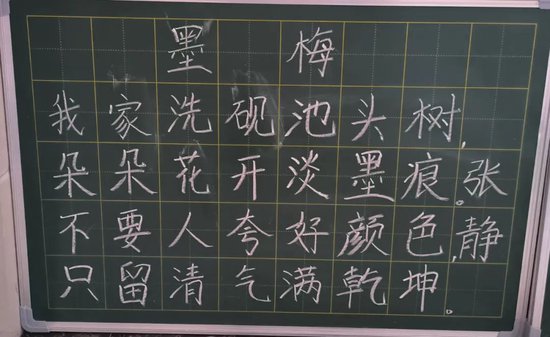 墨梅
我家洗砚池头树,
朵朵花开淡墨痕。张
不要人夸好颜色,静
只留清气满乾坤。